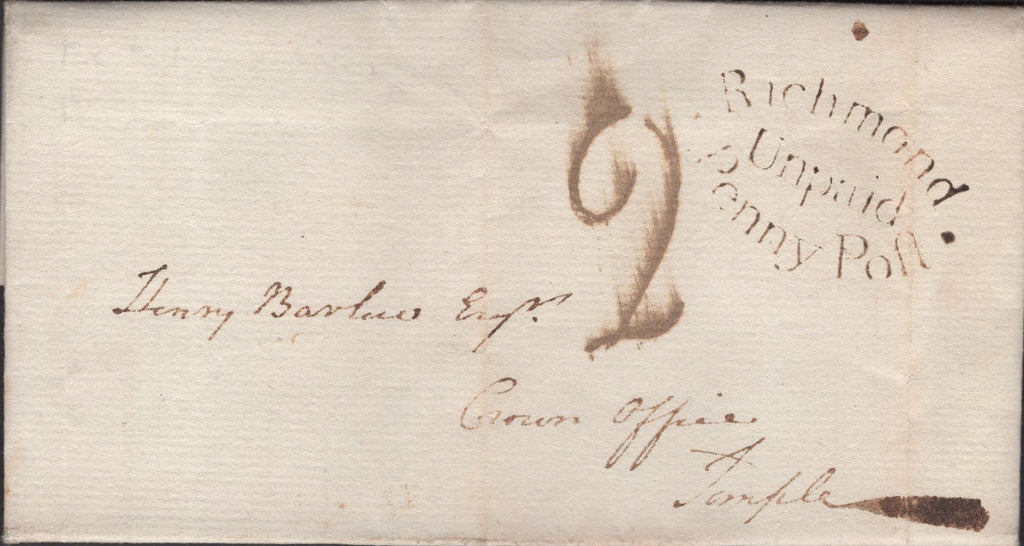 2
Richmond
Unpaid
Penny Poſt
Henry Barlow Esqr.
Crown Office
Temple